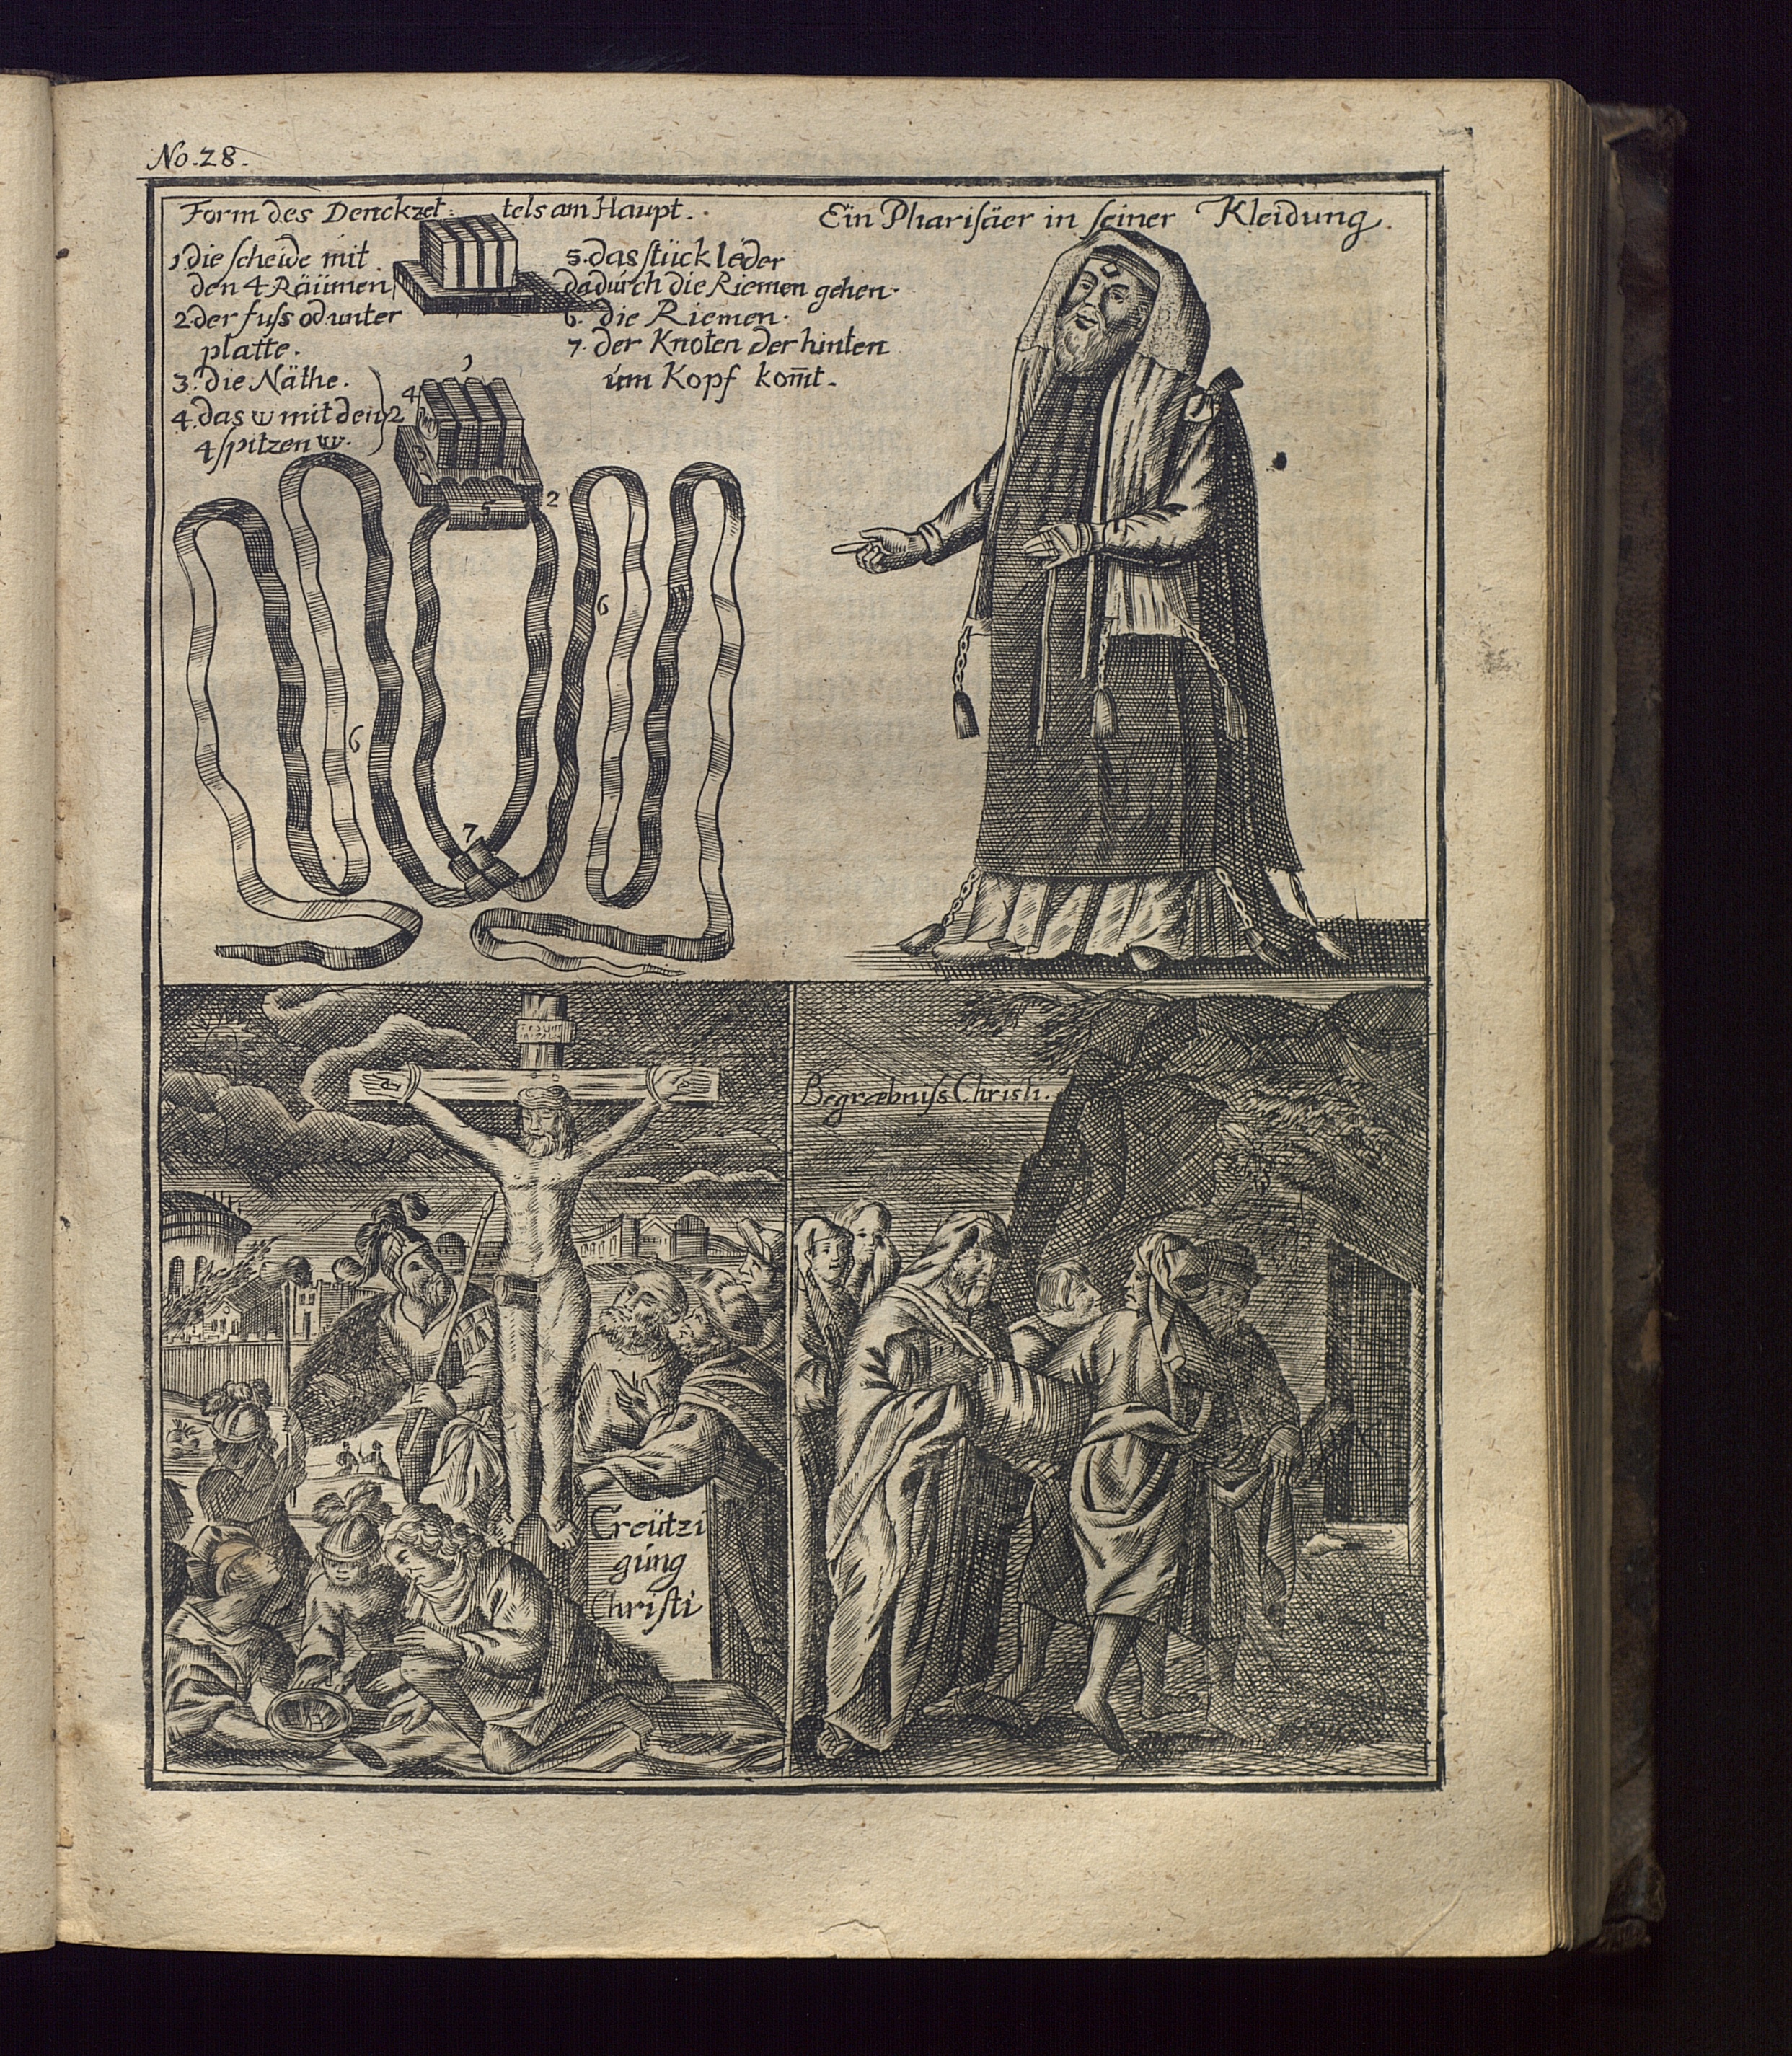 No. 28.
Form des Denckzet= tels am Haupt.
1. die scheide mit
den 4 Räümen
2. der fuss od unter
platte.
3. die Näthe.
4. das ש mit den
4 spitzen
5. das stück leder
dadurch die Riemen gehen.
6. die Riemen.
7. der Knoten der hinten
um Kopf kom̅t.
Ein Pharisäer in seiner Kleidung.
1
4
2
3
5
2
6
6
7
Creützi
gung
Christi
Begræbniss Christi.